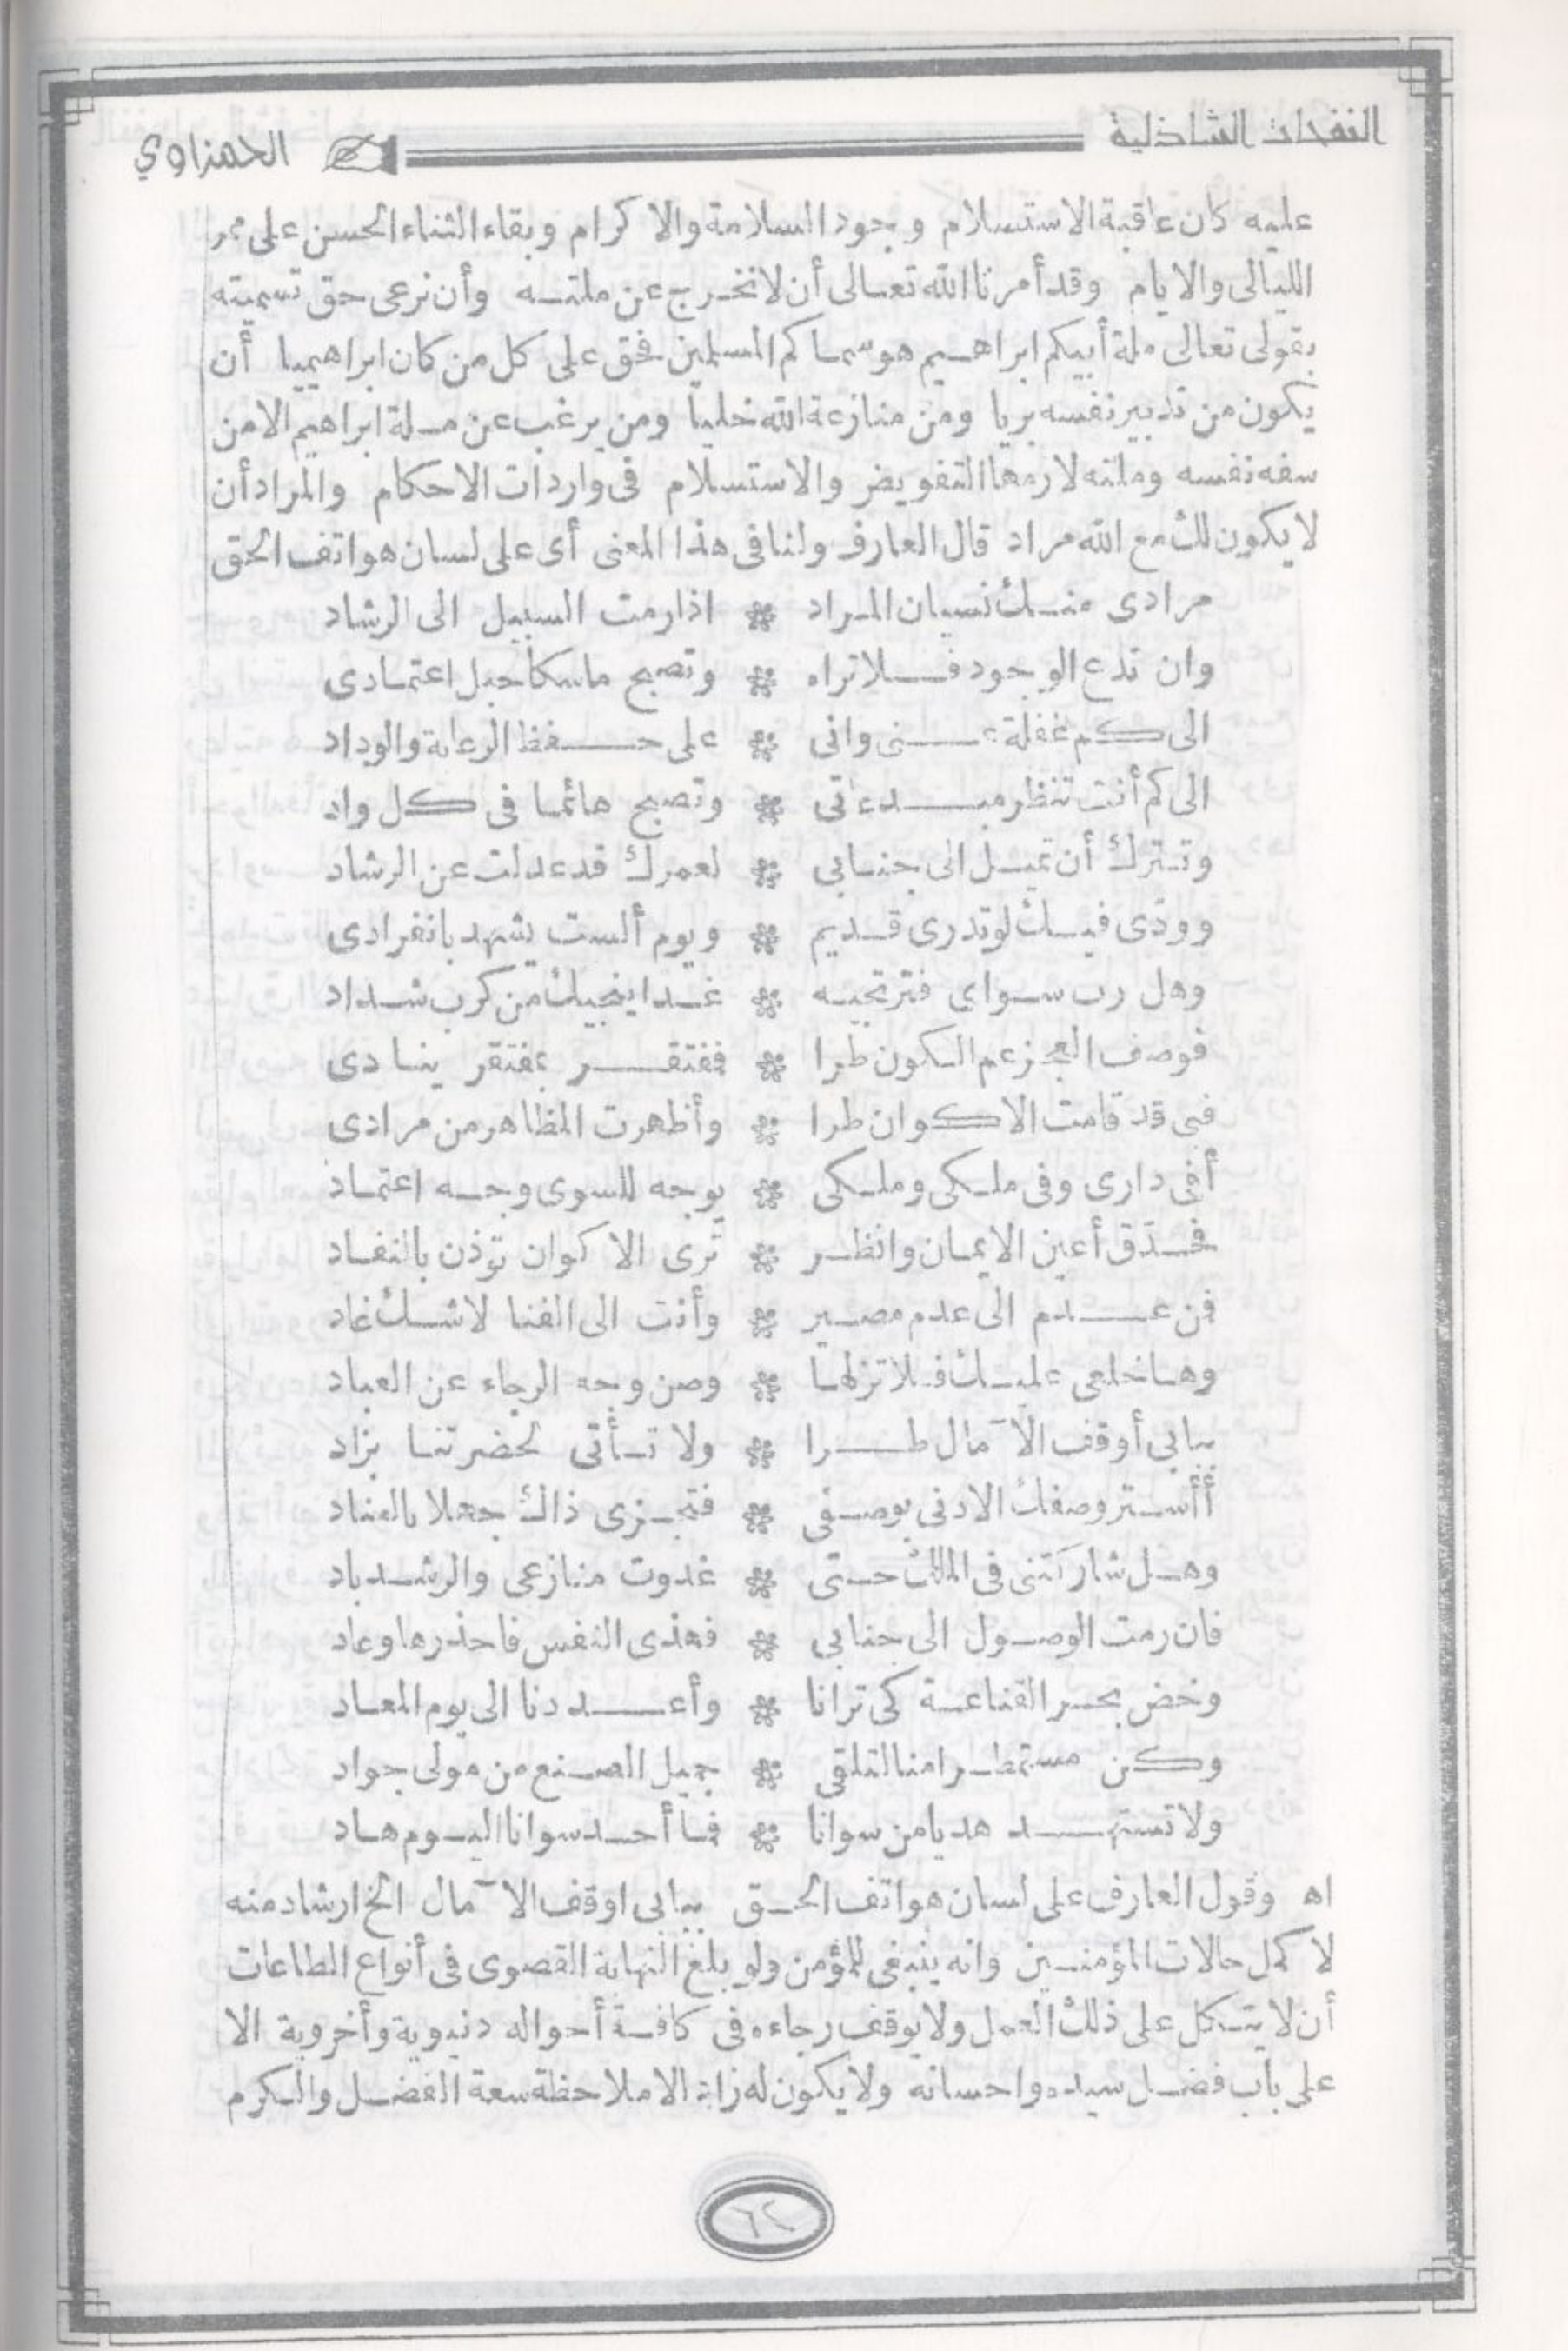 النفحات الشاذلية الحمزاوي
عليه كان عاقبة الاستسلام وجود السلامة والاكرام وبقاء الثناء الحسن على ممر
الليالى والايام وقد أمرنا الله تعالى أن لا نخرج عن ملته وأن نرعى حق تسميته
بقولى تعالى ملة أبيكم ابراهيم هو سماكم المسلمين فحق على كل من كان ابراهيميا أن
يكون من تدبير نفسه بريا ومن منازعة الله خليا ومن يرغب عن ملة ابراهيم الا من
سفه نفسه وملته لازمها التفويض والاستسلام فى واردات الاحكام والمراد أن
لا يكون لك مع الله مراد قال العارف ولنا فى هذا المعنى أى على لسان هواتف الحق
مرادى منك نسيان المراد ❊ اذا رمت السبيل الى الرشاد
وان تدع الوجود فلا تراه ❊ وتصبح ماسكا حبل اعتمادى
الى كم غفلة عنى وانى ❊ على حفظ الرعاية والوداد
الى كم أنت تنظر مبدعاتى ❊ وتصبح هائما فى كل واد
وتترك أن تميل الى جنابى ❊ لعمرك قد عدلت عن الرشاد
وودّى فيك لو تدرى قديم ❊ ويوم ألست يشهد بانفرادى
وهل رب سواى فترتجيه ❊ غدا ينجيك من كرب شداد
فوصف العجز عم الكون طرا ❊ فمفتقر بمفتقر ينادى
فبى قد قامت الاكوان طرا ❊ وأظهرت المظاهر من مرادى
أفى دارى وفى ملكى وملكى ❊ يوجه للسوى وجه اعتماد
فحدّق أعين الايمان وانظر ❊ ترى الاكوان تؤذن بالنفاد
فمن عدم الى عدم مصير ❊ وأنت الى الفنا لا شك غاد
وها خلعى عليك فلا تزلها ❊ وصن وجه الرجاء عن العباد
ببابى أوقف الآمال طرا ❊ ولا تأتى لحضرتنا بزاد
أأستر وصفك الادنى بوصفى ❊ فتجزى ذاك جهلا بالعناد
وهل شاركتنى فى الملك حتى ❊ غدوت منازعى والرشد باد
فان رمت الوصول الى جنابى ❊ فهذى النفس فاحذرها وعاد
وخض بحر القناعة كى ترانا ❊ وأعددنا الى يوم المعاد
وكن مستمطرا منا لتلقى ❊ جميل الصنع من مولى جواد
ولا تستهد هديا من سوانا ❊ فما أحد سوانا اليوم هاد
اه وقول العارف على لسان هواتف الحق ببابى اوقف الآمال الخ ارشاد منه
لاكمل حالات المؤمنين وانه ينبغى للمؤمن ولو بلغ النهاية القصوى فى أنواع الطاعات
أن لا يتكل على ذلك العمل ولا يوقف رجاءه فى كافة أحواله دنيوية وأخروية الا
على باب فضل سيده واحسانه ولا يكون له زاد الا ملاحظة سعة الفضل والكرم
٦٢